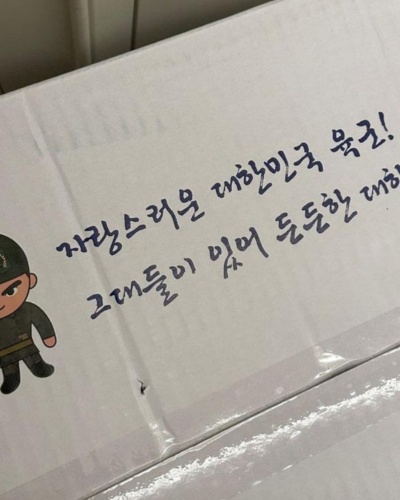 자랑스러운 대한민국 육군!
그대들이 있어 든든한 대한